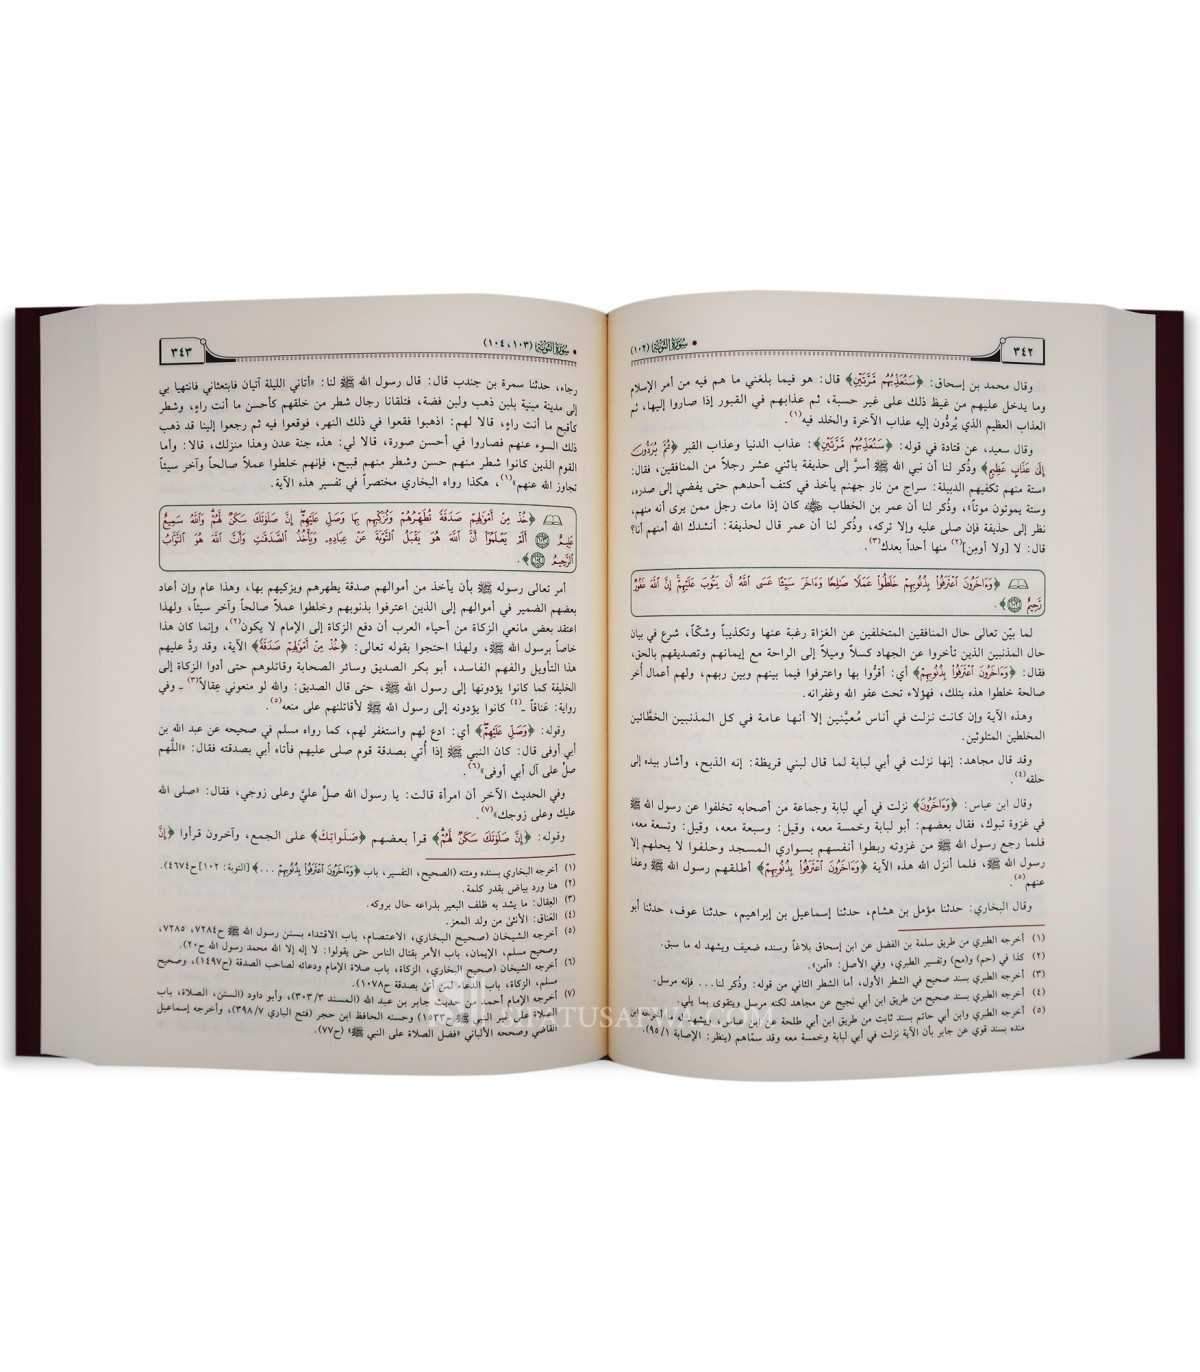 ٣٤٢
• سُورَةُ التَّوْبَةِ (١٠٢)
وقال محمد بن إسحاق: ﴿سَنُعَذِّبُهُم مَّرَّتَيْنِ﴾ قال: هو فيما بلغني ما هم فيه من أمر الإسلام
وما يدخل عليهم من غيظ ذلك على غير حسبة، ثم عذابهم في القبور إذا صاروا إليها، ثم
العذاب العظيم الذي يُردُّون إليه عذاب الآخرة والخلد فيه(١).
وقال سعيد، عن قتادة في قوله: ﴿سَنُعَذِّبُهُم مَّرَّتَيْنِ﴾: عذاب الدنيا وعذاب القبر ﴿ثُمَّ يُرَدُّونَ
إِلَىٰ عَذَابٍ عَظِيمٍ﴾ وذُكر لنا أن نبي الله ﷺ أسرَّ إلى حذيفة باثني عشر رجلاً من المنافقين، فقال:
«ستة منهم تكفيهم الدبيلة: سراج من نار جهنم يأخذ في كتف أحدهم حتى يفضي إلى صدره،
وستة يموتون موتاً»، وذُكر لنا أن عمر بن الخطاب رضي الله عنه كان إذا مات رجل ممن يرى أنه منهم،
نظر إلى حذيفة فإن صلى عليه وإلا تركه، وذُكر لنا أن عمر قال لحذيفة: أنشدك الله أمنهم أنا؟
قال: لا [ولا أومِن](٢) منها أحداً بعدك(٣).
﴿وَءَاخَرُونَ ٱعْتَرَفُوا۟ بِذُنُوبِهِمْ خَلَطُوا۟ عَمَلًا صَٰلِحًا وَءَاخَرَ سَيِّئًا عَسَى ٱللَّهُ أَن يَتُوبَ عَلَيْهِمْ إِنَّ ٱللَّهَ غَفُورٌ
رَّحِيمٌ ١٠٢﴾.
لما بيّن تعالى حال المنافقين المتخلفين عن الغزاة رغبة عنها وتكذيباً وشكّاً، شرع في بيان
حال المذنبين الذين تأخروا عن الجهاد كسلاً وميلاً إلى الراحة مع إيمانهم وتصديقهم بالحق،
فقال: ﴿وَءَاخَرُونَ ٱعْتَرَفُوا۟ بِذُنُوبِهِمْ﴾ أي: أقرُّوا بها واعترفوا فيما بينهم وبين ربهم، ولهم أعمال أُخر
صالحة خلطوا هذه بتلك، فهؤلاء تحت عفو الله وغفرانه.
وهذه الآية وإن كانت نزلت في أناس مُعيَّنين إلا أنها عامة في كل المذنبين الخطَّائين
المخلطين المتلوثين.
وقد قال مجاهد: إنها نزلت في أبي لبابة لما قال لبني قريظة: إنه الذبح، وأشار بيده إلى
حلقه(٤).
وقال ابن عباس: ﴿وَءَاخَرُونَ﴾ نزلت في أبي لبابة وجماعة من أصحابه تخلفوا عن رسول الله ﷺ
في غزوة تبوك، فقال بعضهم: أبو لبابة وخمسة معه، وقيل: وسبعة معه، وقيل: وتسعة معه،
فلما رجع رسول الله ﷺ من غزوته ربطوا أنفسهم بسواري المسجد وحلفوا لا يحلهم إلا
رسول الله ﷺ، فلما أنزل الله هذه الآية ﴿وَءَاخَرُونَ ٱعْتَرَفُوا۟ بِذُنُوبِهِمْ﴾ أطلقهم رسول الله ﷺ وعفا
عنهم(٥).
وقال البخاري: حدثنا مؤمل بن هشام، حدثنا إسماعيل بن إبراهيم، حدثنا عوف، حدثنا أبو
(١) أخرجه الطبري من طريق سلمة بن الفضل عن ابن إسحاق بلاغاً وسنده ضعيف ويشهد له ما سبق.
(٢) كذا في (حم) و(مح) وتفسير الطبري، وفي الأصل: «آمن».
(٣) أخرجه الطبري بسند صحيح في الشطر الأول، أما الشطر الثاني من قوله: وذُكر لنا... فإنه مرسل.
(٤) أخرجه الطبري بسند صحيح من طريق ابن أبي نجيح عن مجاهد لكنه مرسل ويتقوى بما يلي.
(٥) أخرجه الطبري وابن أبي حاتم بسند ثابت من طريق ابن أبي طلحة عن ابن عباس، ويشهد له ما أخرجه ابن
منده بسند قوي عن جابر بأن الآية نزلت في أبي لبابة وخمسة معه وقد سمّاهم (ينظر: الإصابة ٩٥/١).
• سُورَةُ التَّوْبَةِ (١٠٣، ١٠٤)
٣٤٣
رجاء، حدثنا سمرة بن جندب قال: قال رسول الله ﷺ لنا: «أتاني الليلة آتيان فابتعثاني فانتهيا بي
إلى مدينة مبنية بلبن ذهب ولبن فضة، فتلقانا رجال شطر من خلقهم كأحسن ما أنت راءٍ، وشطر
كأقبح ما أنت راءٍ، قالا لهم: اذهبوا فقعوا في ذلك النهر، فوقعوا فيه ثم رجعوا إلينا قد ذهب
ذلك السوء عنهم فصاروا في أحسن صورة، قالا لي: هذه جنة عدن وهذا منزلك، قالا: وأما
القوم الذين كانوا شطر منهم حسن وشطر منهم قبيح، فإنهم خلطوا عملاً صالحاً وآخر سيئاً
تجاوز الله عنهم»(١)، هكذا رواه البخاري مختصراً في تفسير هذه الآية.
﴿خُذْ مِنْ أَمْوَٰلِهِمْ صَدَقَةً تُطَهِّرُهُمْ وَتُزَكِّيهِم بِهَا وَصَلِّ عَلَيْهِمْ إِنَّ صَلَوٰتَكَ سَكَنٌ لَّهُمْ وَٱللَّهُ سَمِيعٌ
عَلِيمٌ ١٠٣ أَلَمْ يَعْلَمُوٓا۟ أَنَّ ٱللَّهَ هُوَ يَقْبَلُ ٱلتَّوْبَةَ عَنْ عِبَادِهِۦ وَيَأْخُذُ ٱلصَّدَقَٰتِ وَأَنَّ ٱللَّهَ هُوَ ٱلتَّوَّابُ
ٱلرَّحِيمُ ١٠٤﴾.
أمر تعالى رسوله ﷺ بأن يأخذ من أموالهم صدقة يطهرهم ويزكيهم بها، وهذا عام وإن أعاد
بعضهم الضمير في أموالهم إلى الذين اعترفوا بذنوبهم وخلطوا عملاً صالحاً وآخر سيئاً، ولهذا
اعتقد بعض مانعي الزكاة من أحياء العرب أن دفع الزكاة إلى الإمام لا يكون(٢)، وإنما كان هذا
خاصاً برسول الله ﷺ، ولهذا احتجوا بقوله تعالى: ﴿خُذْ مِنْ أَمْوَٰلِهِمْ صَدَقَةً﴾ الآية، وقد ردَّ عليهم
هذا التأويل والفهم الفاسد، أبو بكر الصديق وسائر الصحابة وقاتلوهم حتى أدوا الزكاة إلى
الخليفة كما كانوا يؤدونها إلى رسول الله ﷺ، حتى قال الصديق: والله لو منعوني عِقالاً(٣) ـ وفي
رواية: عَناقاً ـ(٤) كانوا يؤدونه إلى رسول الله ﷺ لأقاتلنهم على منعه(٥).
وقوله: ﴿وَصَلِّ عَلَيْهِمْ﴾ أي: ادع لهم واستغفر لهم، كما رواه مسلم في صحيحه عن عبد الله بن
أبي أوفى قال: كان النبي ﷺ إذا أُتي بصدقة قوم صلى عليهم فأتاه أبي بصدقته فقال: «اللَّهم
صلِّ على آل أبي أوفى»(٦).
وفي الحديث الآخر أن امرأة قالت: يا رسول الله صلِّ عليَّ وعلى زوجي، فقال: «صلى الله
عليك وعلى زوجك»(٧).
وقوله: ﴿إِنَّ صَلَوٰتَكَ سَكَنٌ لَّهُمْ﴾ قرأ بعضهم ﴿صَلَواتِكَ﴾ على الجمع، وآخرون قرأوا ﴿إِنَّ
(١) أخرجه البخاري بسنده ومتنه (الصحيح، التفسير، باب ﴿وَءَاخَرُونَ ٱعْتَرَفُوا۟ بِذُنُوبِهِمْ ...﴾ [التوبة: ١٠٢] ح٤٦٧٤).
(٢) هنا ورد بياض بقدر كلمة.
(٣) العِقال: ما يشد به ظلف البعير بذراعه حال بروكه.
(٤) العَناق: الأنثى من ولد المعز.
(٥) أخرجه الشيخان (صحيح البخاري، الاعتصام، باب الاقتداء بسنن رسول الله ﷺ ح٧٢٨٤، ٧٢٨٥،
وصحيح مسلم، الإيمان، باب الأمر بقتال الناس حتى يقولوا: لا إله إلا الله محمد رسول الله ح٢٠).
(٦) أخرجه الشيخان (صحيح البخاري، الزكاة، باب صلاة الإمام ودعائه لصاحب الصدقة (ح١٤٩٧)، وصحيح
مسلم، الزكاة، باب الدعاء لمن أتى بصدقة ح١٠٧٨).
(٧) أخرجه الإمام أحمد من حديث جابر بن عبد الله (المسند ٣٠٣/٣)، وأبو داود (السنن، الصلاة، باب
الصلاة على غير النبي ﷺ ح١٥٣٣) وحسنه الحافظ ابن حجر (فتح الباري ٣٩٨/٧)، وأخرجه إسماعيل
القاضي وصححه الألباني «فضل الصلاة على النبي ﷺ» (ح٧٧).